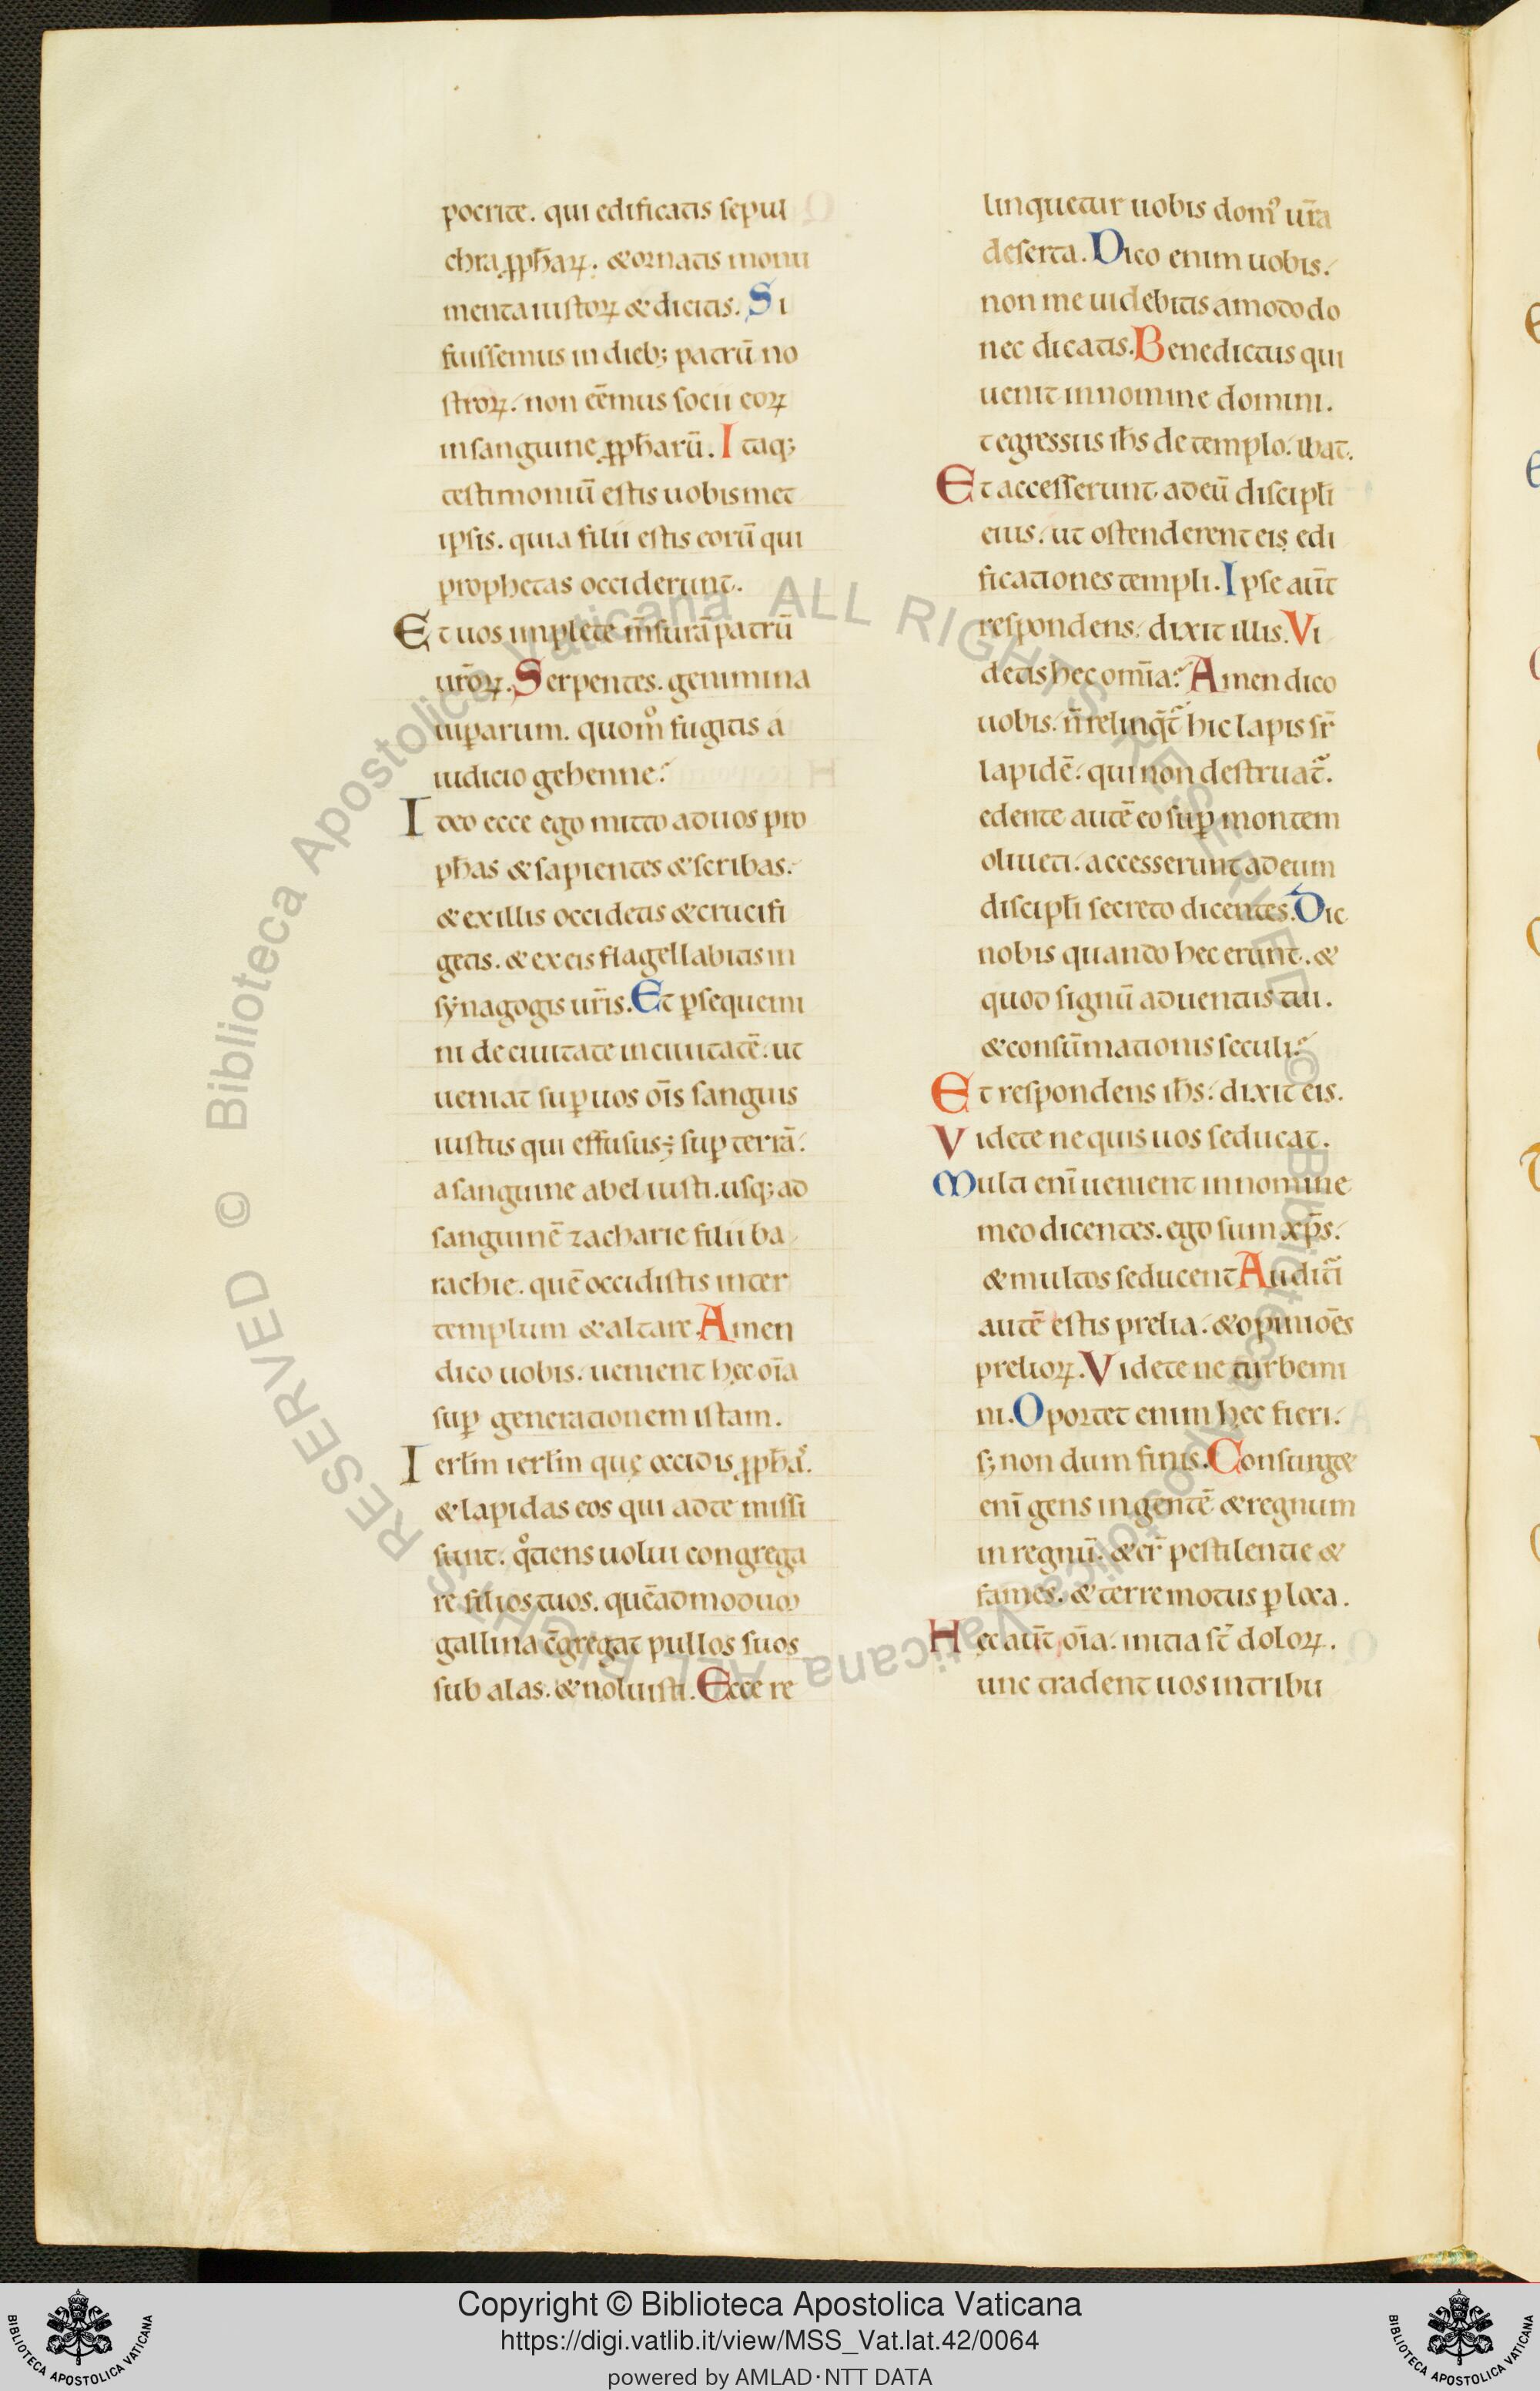 pocrite. qui edificatis sepul
chra ꝓph̄aꝝ. & ornatis monu
menta iustoꝝ & dicitis. Si
fuissemus in dieb; patrū no
stroꝝ. non eēmus socii eoꝝ
in sanguine ꝓph̄arū. Itaq;
testimoniū estis uobismet
ipsis. quia filii estis eorū qui
prophetas occiderunt.
Et uos implete m̄surā patrū
ur̄oꝝ. Serpentes. genimina
uiꝑarum. quom̊ fugitis a
iudicio gehenne?
Ideo ecce ego mitto ad uos pro
ph̄as & sapientes & scribas.
& ex illis occidetis & crucifi
getis. & ex eis flagellabitis in
synagogis ur̄is. Et ꝑsequemi
ni de ciuitate in ciuitatē. ut
ueniat suꝑ uos oīs sanguis
iustus qui effusus; suꝑ terrā.
a sanguine abel iusti. usq; ad
sanguinē zacharie filii ba
rachie. quē occidistis inter
templum & altare. Amen
dico uobis. uenient hec oīa
suꝑ generationem istam.
Ierl̄m ierl̄m quę occidis ꝓph̄as.
& lapidas eos qui ad te missi
sunt. q̊tiens uolui congrega
re filios tuos. quēadmodum
gallina c̄gregat pullos suos
sub alas. & noluisti. Ecce re
linquetur uobis dom᷒ ur̄a
deserta. Dico enim uobis.
non me uidebitis amodo do
nec dicatis. Benedictus qui
uenit in nomine domini.
t egressus ih̄s de templo. ibat.
Et accesserunt ad eū discipl̄i
eius. ut ostenderent eis edi
ficationes templi. Ipse aūt
respondens. dixit illis. Vi
detis hec om̄ia? Amen dico
uobis. n̄ relinq̄t᷑ hic lapis sr̄
lapidē. qui non destruat᷑.
edente autē eo suꝑ montem
oliueti. accesserunt ad eum
discipl̄i secreto dicentes. Dic
nobis quando hec erunt. &
quod signū aduentus tui.
& consūmationis seculi?
Et respondens ih̄s. dixit eis.
Videte ne quis uos seducat.
Multi enī uenient in nomine
meo dicentes. ego sum xp̄s.
& multos seducent Audit᷑i
autē estis prelia. & opiniōes
prelioꝝ. Videte ne turbemi
ni. Oportet enim hec fieri.
s; non dum finis. Consurg&
enī gens in gentē & regnum
in regnū. & er̄ pestilentie &
fames. & terremotus ꝑ loca.
Hęc aūt oīa. initia st̄ doloꝝ.
unc tradent uos in tribu
© Biblioteca Apostolica Vaticana ALL RIGHTS RESERVED
Copyright © Biblioteca Apostolica Vaticana
https://digi.vatlib.it/view/MSS_Vat.lat.42/0064
powered by AMLAD·NTT DATA
BIBLIOTECA APOSTOLICA VATICANA
BIBLIOTECA APOSTOLICA VATICANA